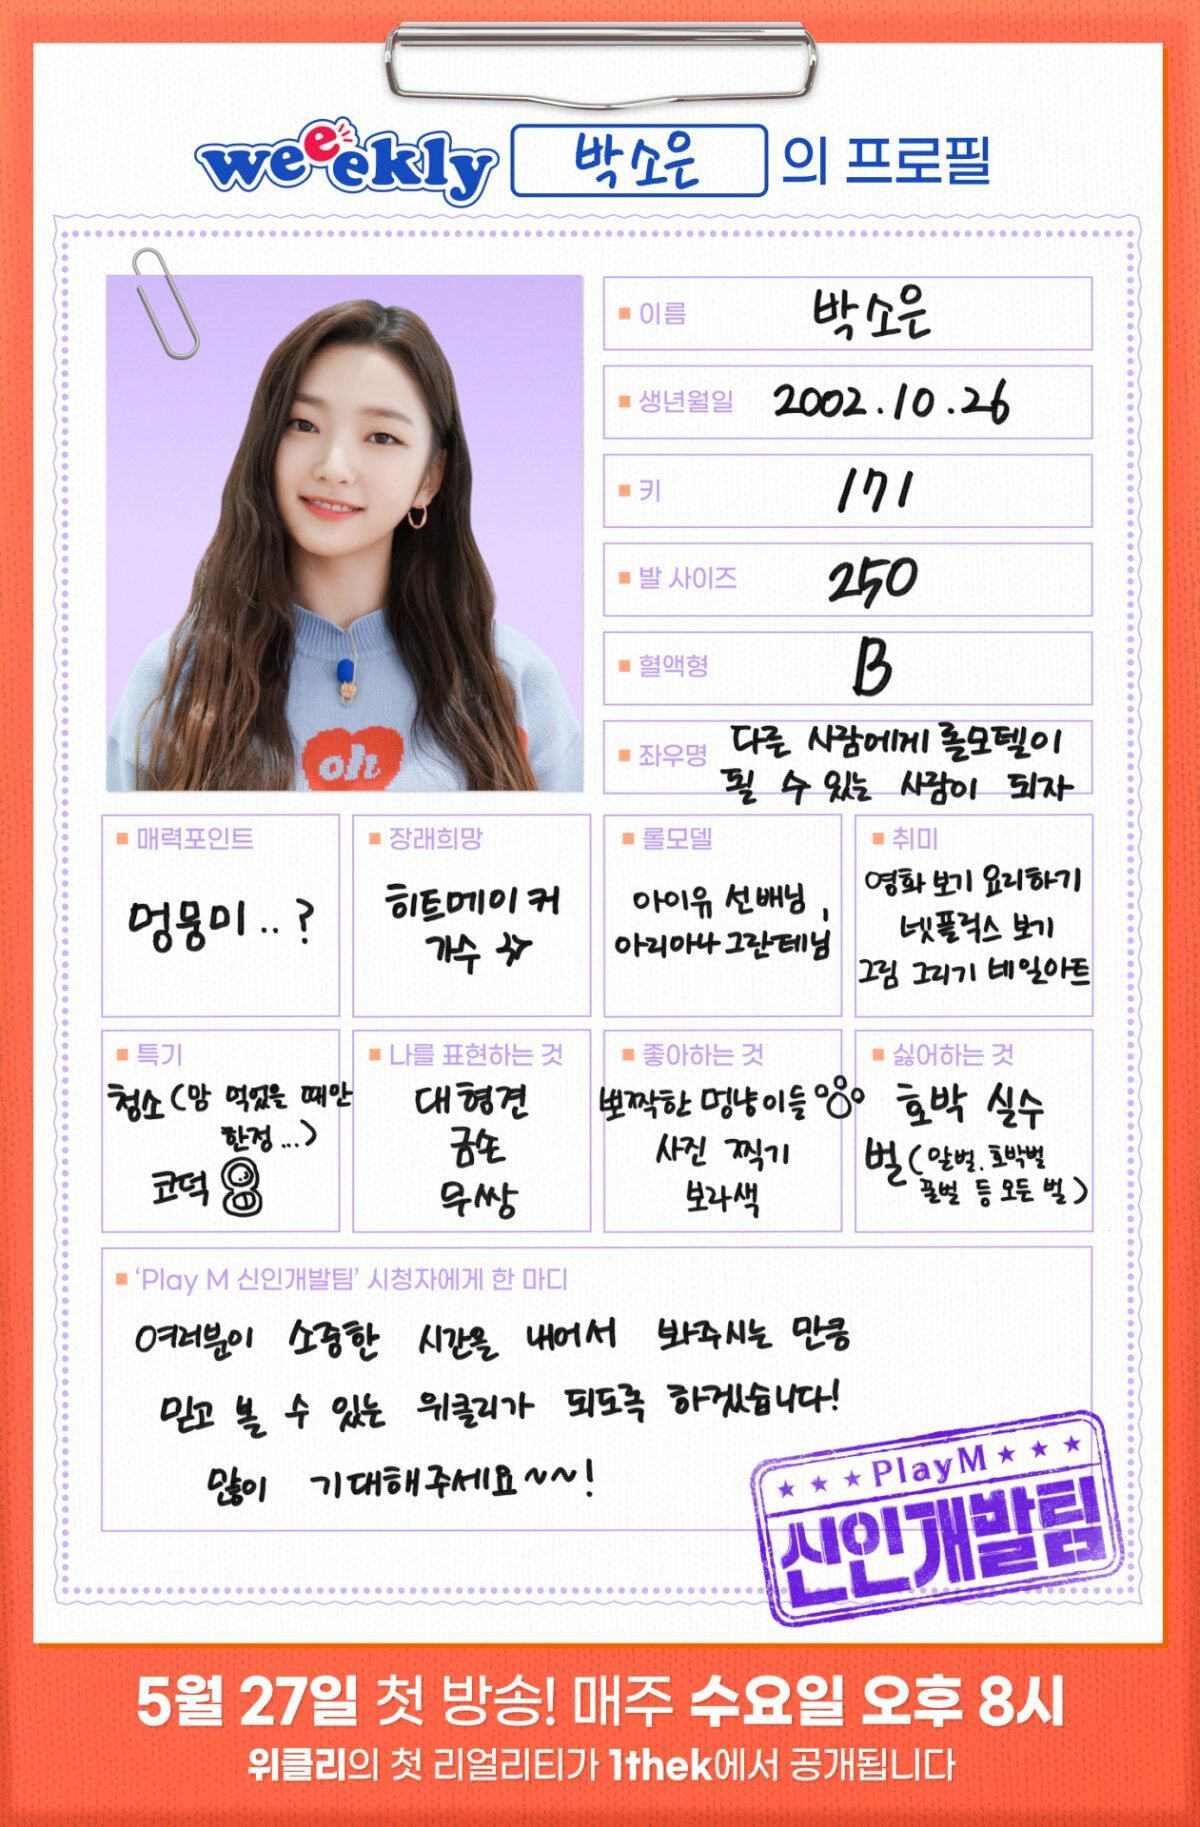 weeekly 박소은 의 프로필
이름 박소은
생년월일 2002.10.26
키 171
발 사이즈 250
혈액형 B
좌우명 다른 사람에게 롤모델이
될 수 있는 사람이 되자
매력포인트
멍뭉미..?
장래희망
히트메이커
가수 ☆
롤모델
아이유 선배님,
아리아나 그란데님
취미
영화 보기 요리하기
넷플릭스 보기
그림 그리기 네일아트
특기
청소 (맘 먹었을 때만
한정...)
코덕
나를 표현하는 것
대형견
금손
무쌍
좋아하는 것
뽀짝한 멍냥이들
사진 찍기
보라색
싫어하는 것
호박 실수
벌 (말벌, 호박벌
꿀벌 등 모든 벌)
'Play M 신인개발팀' 시청자에게 한 마디
여러분이 소중한 시간을 내어서 봐주시는 만큼
믿고 볼 수 있는 위클리가 되도록 하겠습니다!
많이 기대해주세요~~!
★★★PlayM★★★
신인개발팀
5월 27일 첫 방송! 매주 수요일 오후 8시
위클리의 첫 리얼리티가 1thek에서 공개됩니다